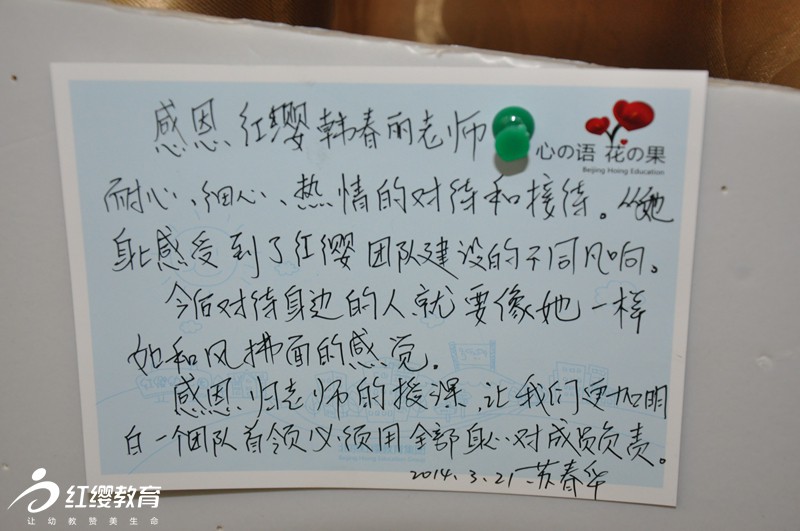 感恩红缨韩春丽老师
心の语 花の果
Beijing Hoing Education
耐心、细心、热情的对待和接待。从她
身上感受到了红缨团队建设的不同凡响。
今后对待身边的人就要像她一样
如和风拂面的感觉。
感恩归老师的授课,让我们更加明
白一个团队首领必须用全部身心对成员负责。
2014.3.21 苏春华
红缨教育
让幼教赞美生命